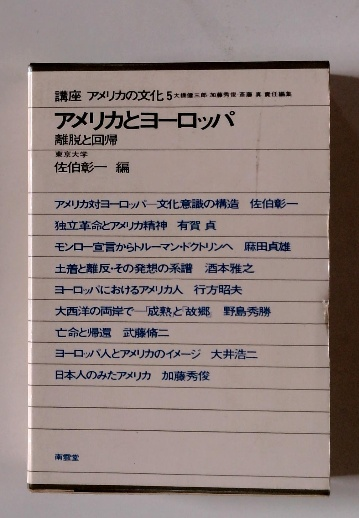 講座 アメリカの文化 5 大橋健三郎・加藤秀俊・斎藤 真 責任編集
アメリカとヨーロッパ
離脱と回帰
東京大学
佐伯彰一 編
アメリカ対ヨーロッパ—文化意識の構造 佐伯彰一
独立革命とアメリカ精神 有賀 貞
モンロー宣言からトルーマン・ドクトリンへ 麻田貞雄
土着と離反・その発想の系譜 酒本雅之
ヨーロッパにおけるアメリカ人 行方昭夫
大西洋の両岸で—「成熟」と「故郷」 野島秀勝
亡命と帰還 武藤脩二
ヨーロッパ人とアメリカのイメージ 大井浩二
日本人のみたアメリカ 加藤秀俊
南雲堂